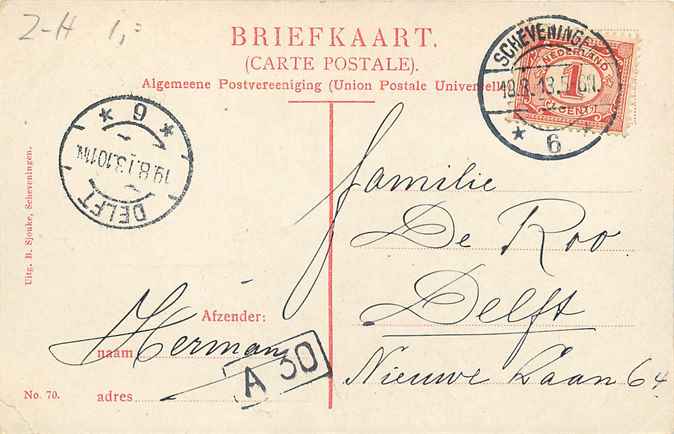 2-H 1,=
BRIEFKAART.
(CARTE POSTALE).
Algemeene Postvereeniging (Union Postale Universelle)
SCHEVENINGEN
18.8.13.5
6
NEDERLAND
1
CENT
6
19.8.13.10
DELFT
Uitg. B. Sjouke, Scheveningen.
familie
De Roo
Delft
Nieuwe Laan 64
Afzender:
naam Herman
adres
A 30
No. 70.